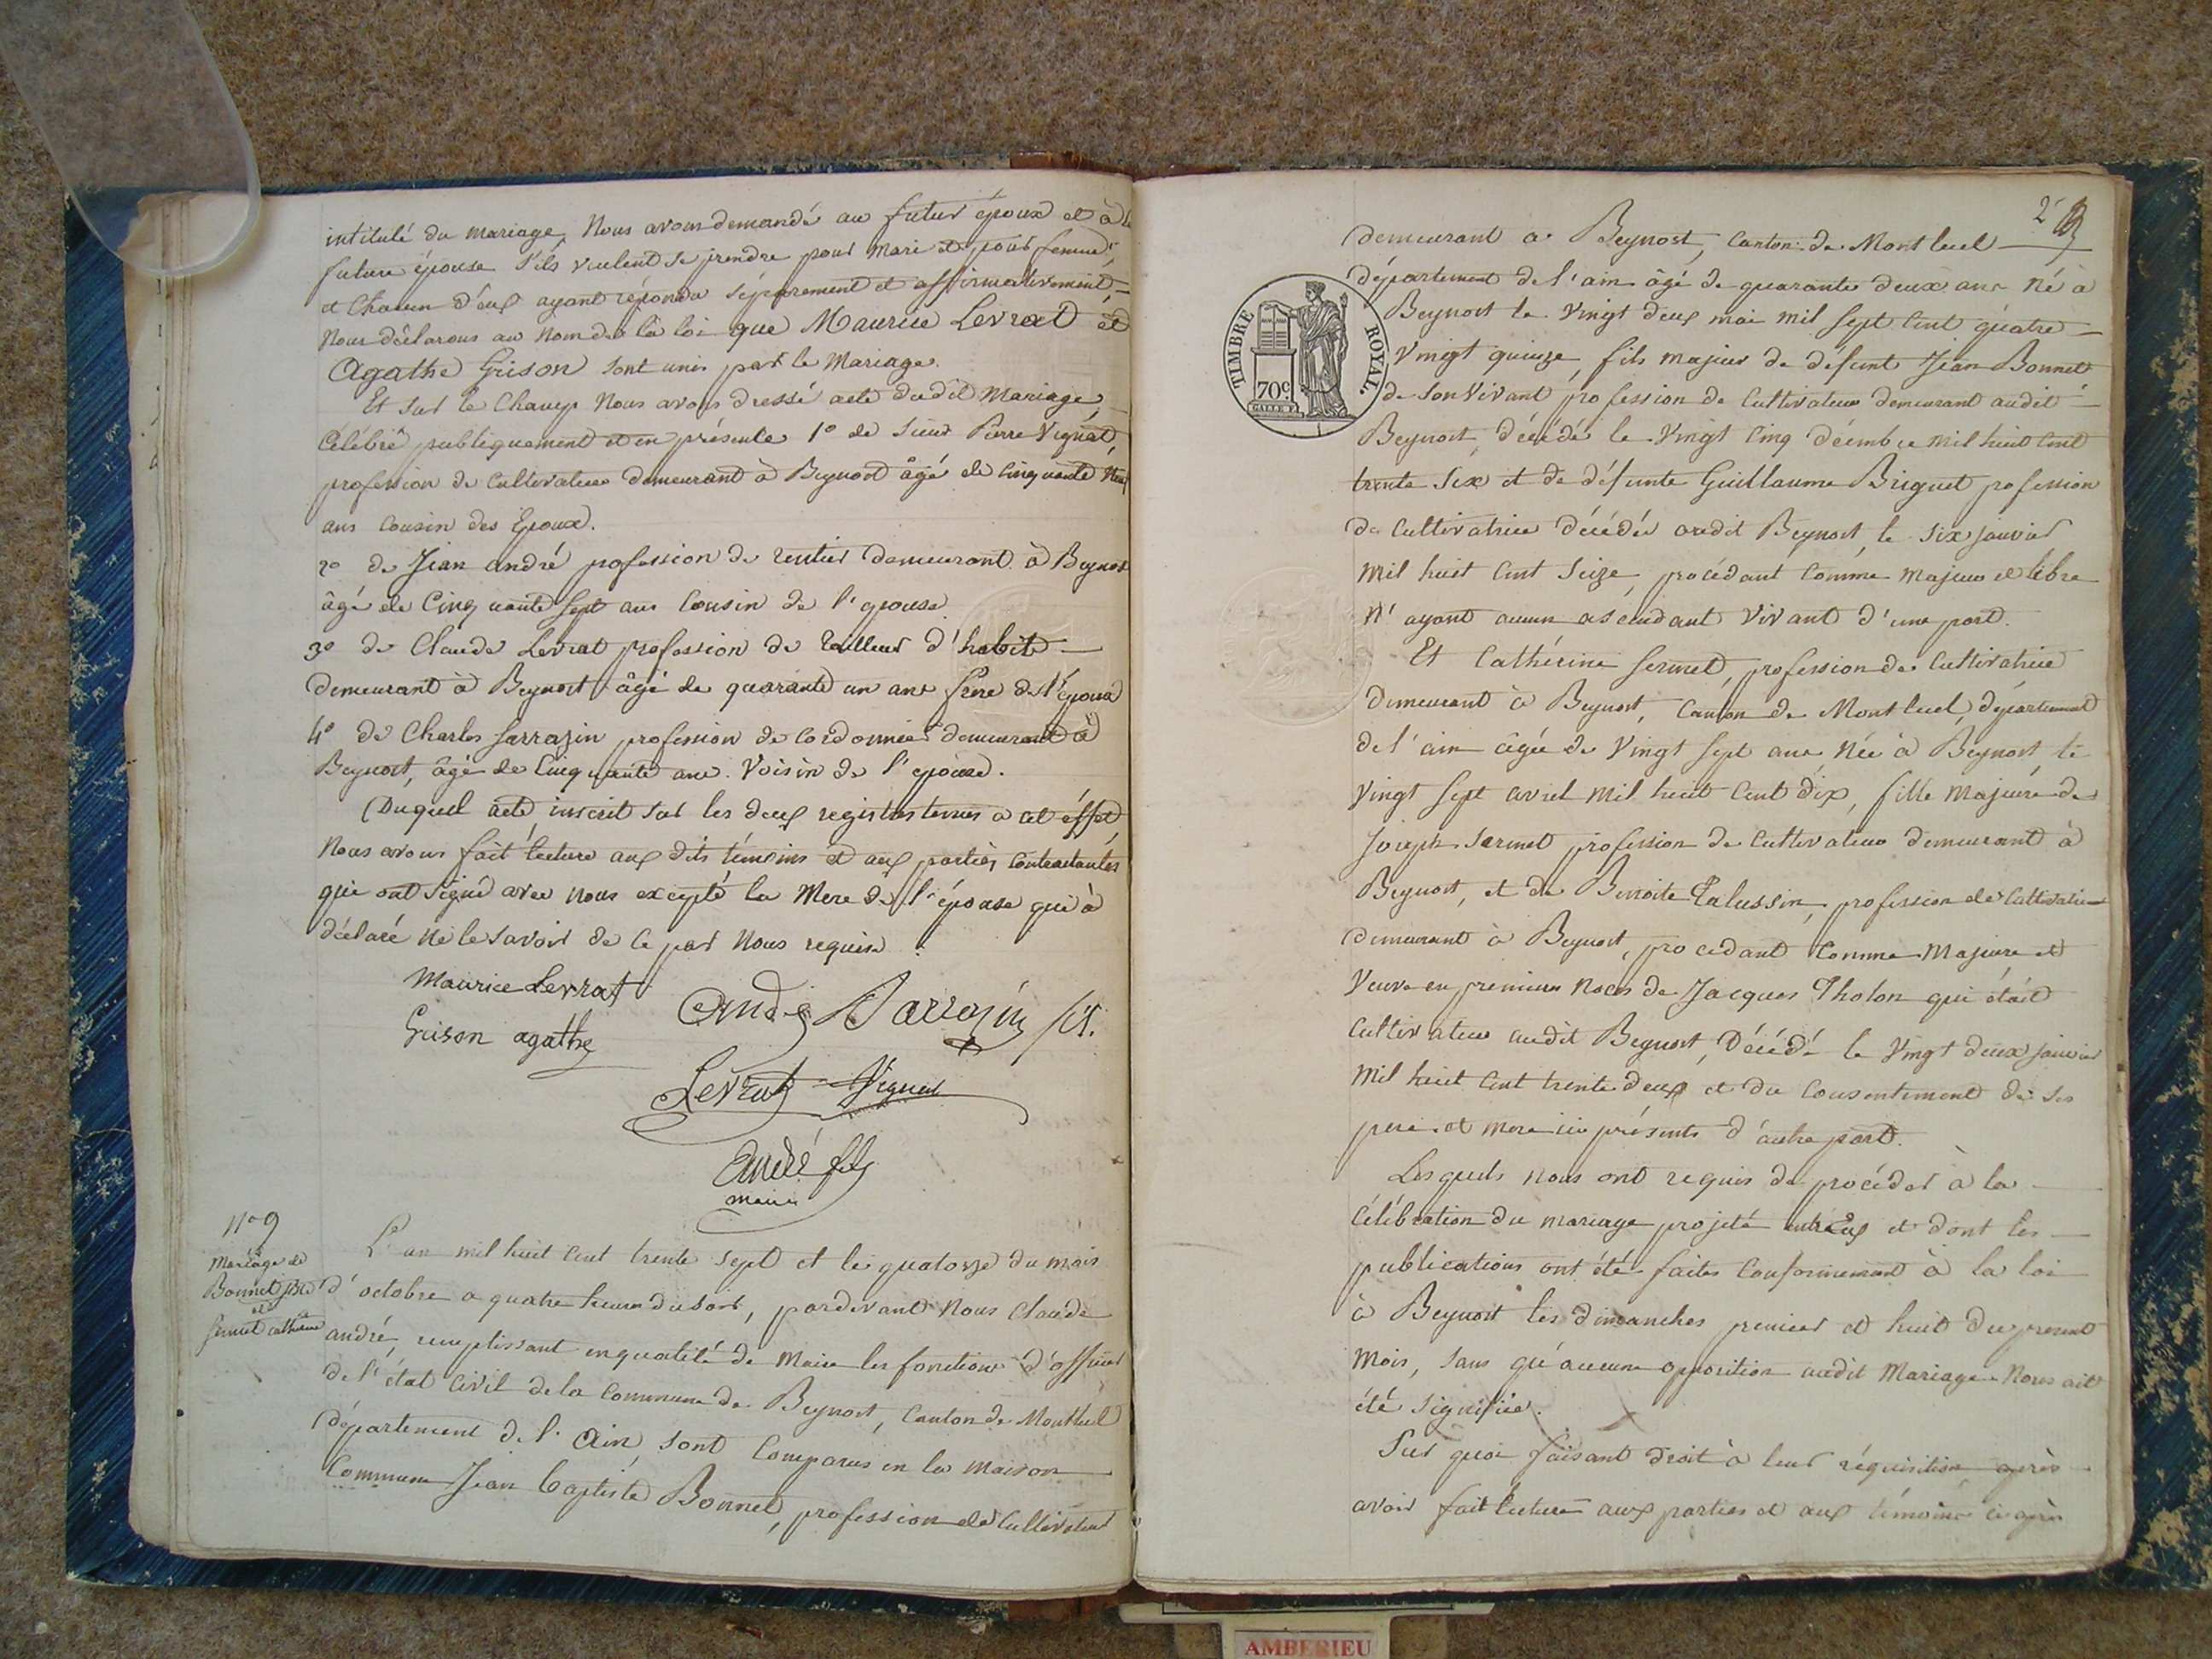 intitulé du mariage, Nous avons demandé au futur époux et à la
future épouse s'ils veulent se prendre pour mari et pour femme,
et Chacun d'eux ayant répondu séparement et affirmativement,
Nous déclarons au nom de la loi que Maurice Levrat et
Agathe Grison sont unis par le Mariage.
Et sur le Champ Nous avons dressé acte dudit Mariage,
Célébré publiquement et en présence 1° de Sieur Pierre Vignat,
profession de Cultivateur demeurant à Beynost âgé de Cinquante neuf
ans Cousin des Epoux.
2° de Jean andré profession de rentier demeurant à Beynost
âgé de Cinquante sept ans Cousin de l'épouse
3° de Claude Levrat profession de tailleur d'habits
demeurant à Beynost âgé de quarante un ans frère de l'époux
4° de Charles Sarrazin profession de Cordonnier demeurant à
Beynost, âgé de Cinquante ans. Voisin de l'épouse.
Duquel acte inscrit sur les deux registres tenus à cet éffet
Nous avons fait lecture aux dits témoins et aux parties Contractantes
qui ont signé avec nous excepté la Mere de l'épouse qui à
déclaré ne le savoir de Ce par Nous requise.
Maurice Levrat
André Sarrazin
Grison agathe
Levrat Vignat
André fils
maire
N° 9
Mariage de
Bonnet
et
Sermet catherine
L'an mil huit Cent trente sept et le quatorze du mois
d'octobre a quatre heures du soir, pardevant Nous Claude
andré, remplissant en qualité de Maire les fonctions d'officier
de l'état Civil de la Commune de Beynost, Canton de Montluel
département de l'Ain, sont Comparus en la Maison
Commune Jean baptiste Bonnet, profession de Cultivateur
2
demeurant à Beynost, Canton de Montluel
département de l'ain âgé de quarante deux ans Né à
Beynost le Vingt deux mai mil sept Cent quatre
Vingt quinze, fils majeur de défunt Jean Bonnet
de son Vivant profession de Cultivateur demeurant audit
Beynost, décédé le Vingt Cinq décembre mil huit Cent
trente Six et de défunte Guillaume Briguet profession
de Cultivatrice décédée audit Beynost, le six janvier
Mil huit Cent Seize, procédant Comme Majeur et libre
N'ayant aucun ascendant Vivant d'une part.
Et Cathérine Sermet, profession de Cultivatrice
demeurant à Beynost, Canton de Montluel, département
de l'ain âgée de Vingt sept ans, Née à Beynost, le
Vingt Sept avril Mil huit Cent dix, fille Majeure de
Joseph Sermet profession de Cultivateur demeurant à
Beynost, et de Benoite profession de Cultivatrice
demeurant à Beynost, procedant Comme Majeure et
Veuve en premieres Noces de Jacques Tholon qui était
Cultivateur audit Beynost, Décédé le Vingt deux janvier
Mil huit Cent trente deux et du Consentement de ses
pere et mere ici présents d'autre part.
Lesquels nous ont requis de procéder à la
Célébration du mariage projeté entre Eux et dont les
publications ont été faites Conformement à la loi
à Beynost les dimanches premier et huit du present
Mois, Sans qu'aucune opposition audit Mariage Nous ait
été signifiée.
Sur quoi faisant droit à leur réquisition après
avoir fait lecture aux parties et aux témoins ci après
TIMBRE ROYAL.
70c.
AMBERIEU